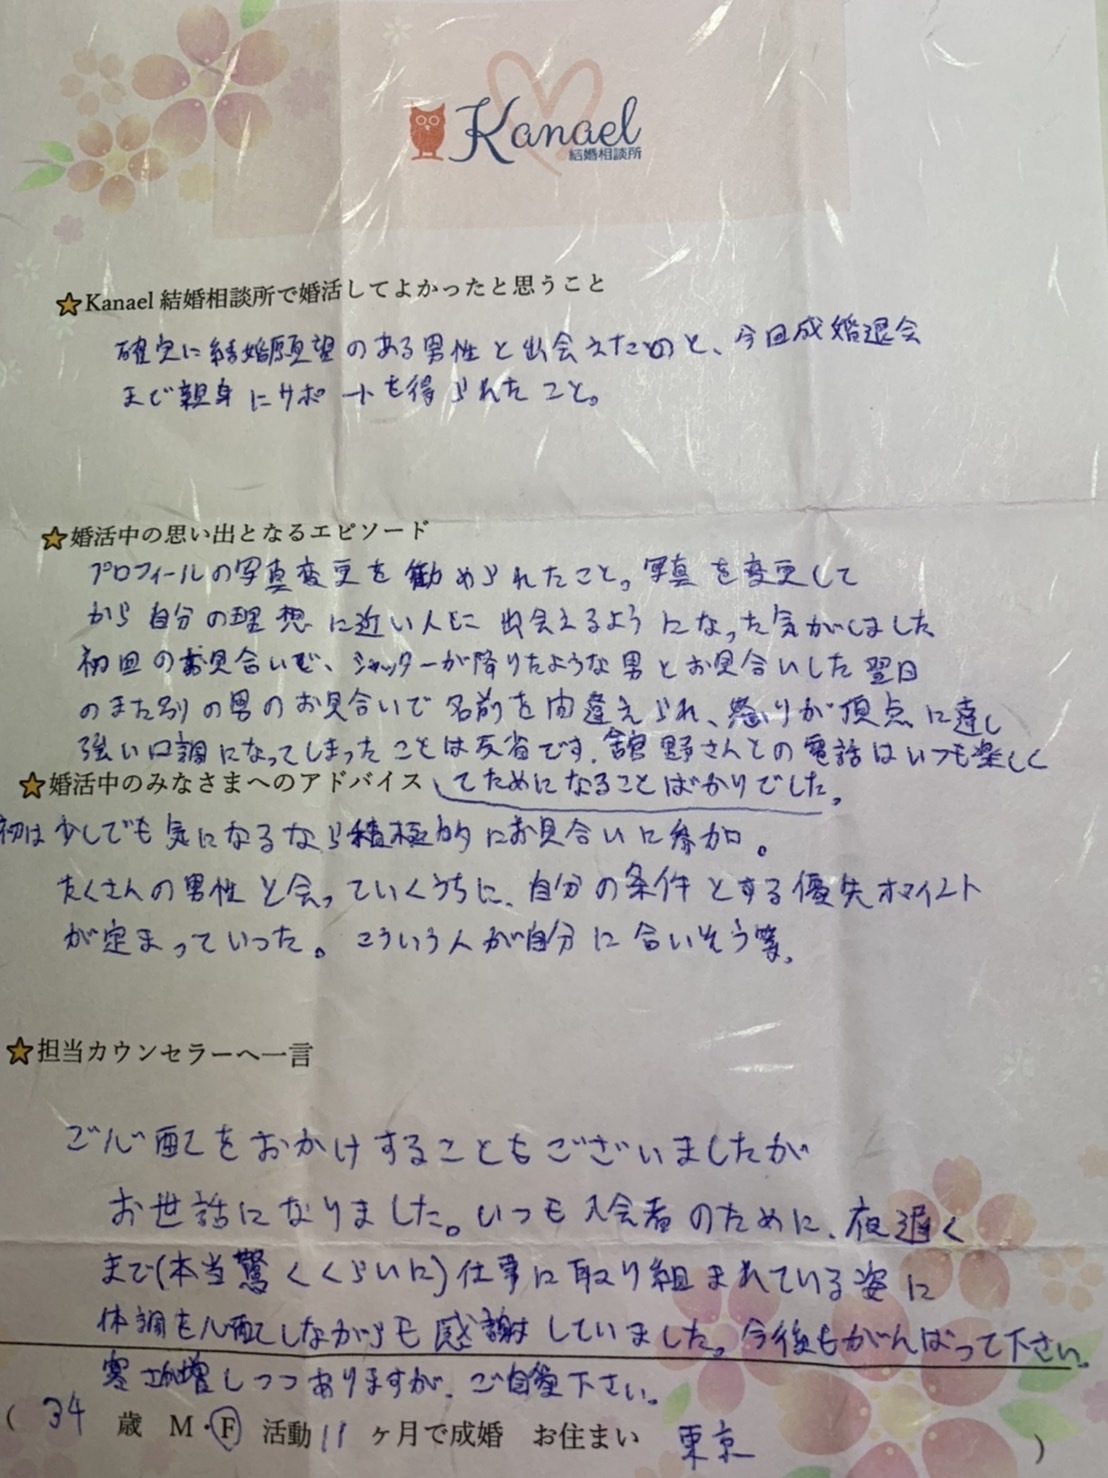 Kanael
結婚相談所
★Kanael 結婚相談所で婚活してよかったと思うこと
確実に結婚願望のある男性と出会えたのと、今回成婚退会
まで親身にサポートを得られたこと。
★婚活中の思い出となるエピソード
プロフィールの写真変更を勧められたこと。写真を変更して
から自分の理想に近い人とに出会えるようになった気がしました
初回のお見合いで、シャッターが降りたような男とお見合いした翌日
のまた別の男のお見合いで名前を間違えられ、怒りが頂点に達し
強い口調になってしまったことは反省です。舘野さんとの電話はいつも楽しく
★婚活中のみなさまへのアドバイス
してためになることばかりでした。
初は少しでも気になるなら積極的にお見合いに参加。
たくさんの男性と会っていくうちに、自分の条件とする優先ポイント
が定まっていった。こういう人が自分に合いそう等。
★担当カウンセラーへ一言
ご心配をおかけすることもございましたが
お世話になりました。いつも入会者のために、夜遅く
まで(本当驚くくらいに)仕事に取り組まれている姿に
体調を心配しながらも感謝していました。今後もがんばって下さい。
寒さ増しつつありますが、ご自愛下さい。
( 34 歳 M・F 活動 11 ヶ月で成婚 お住まい 東京 )